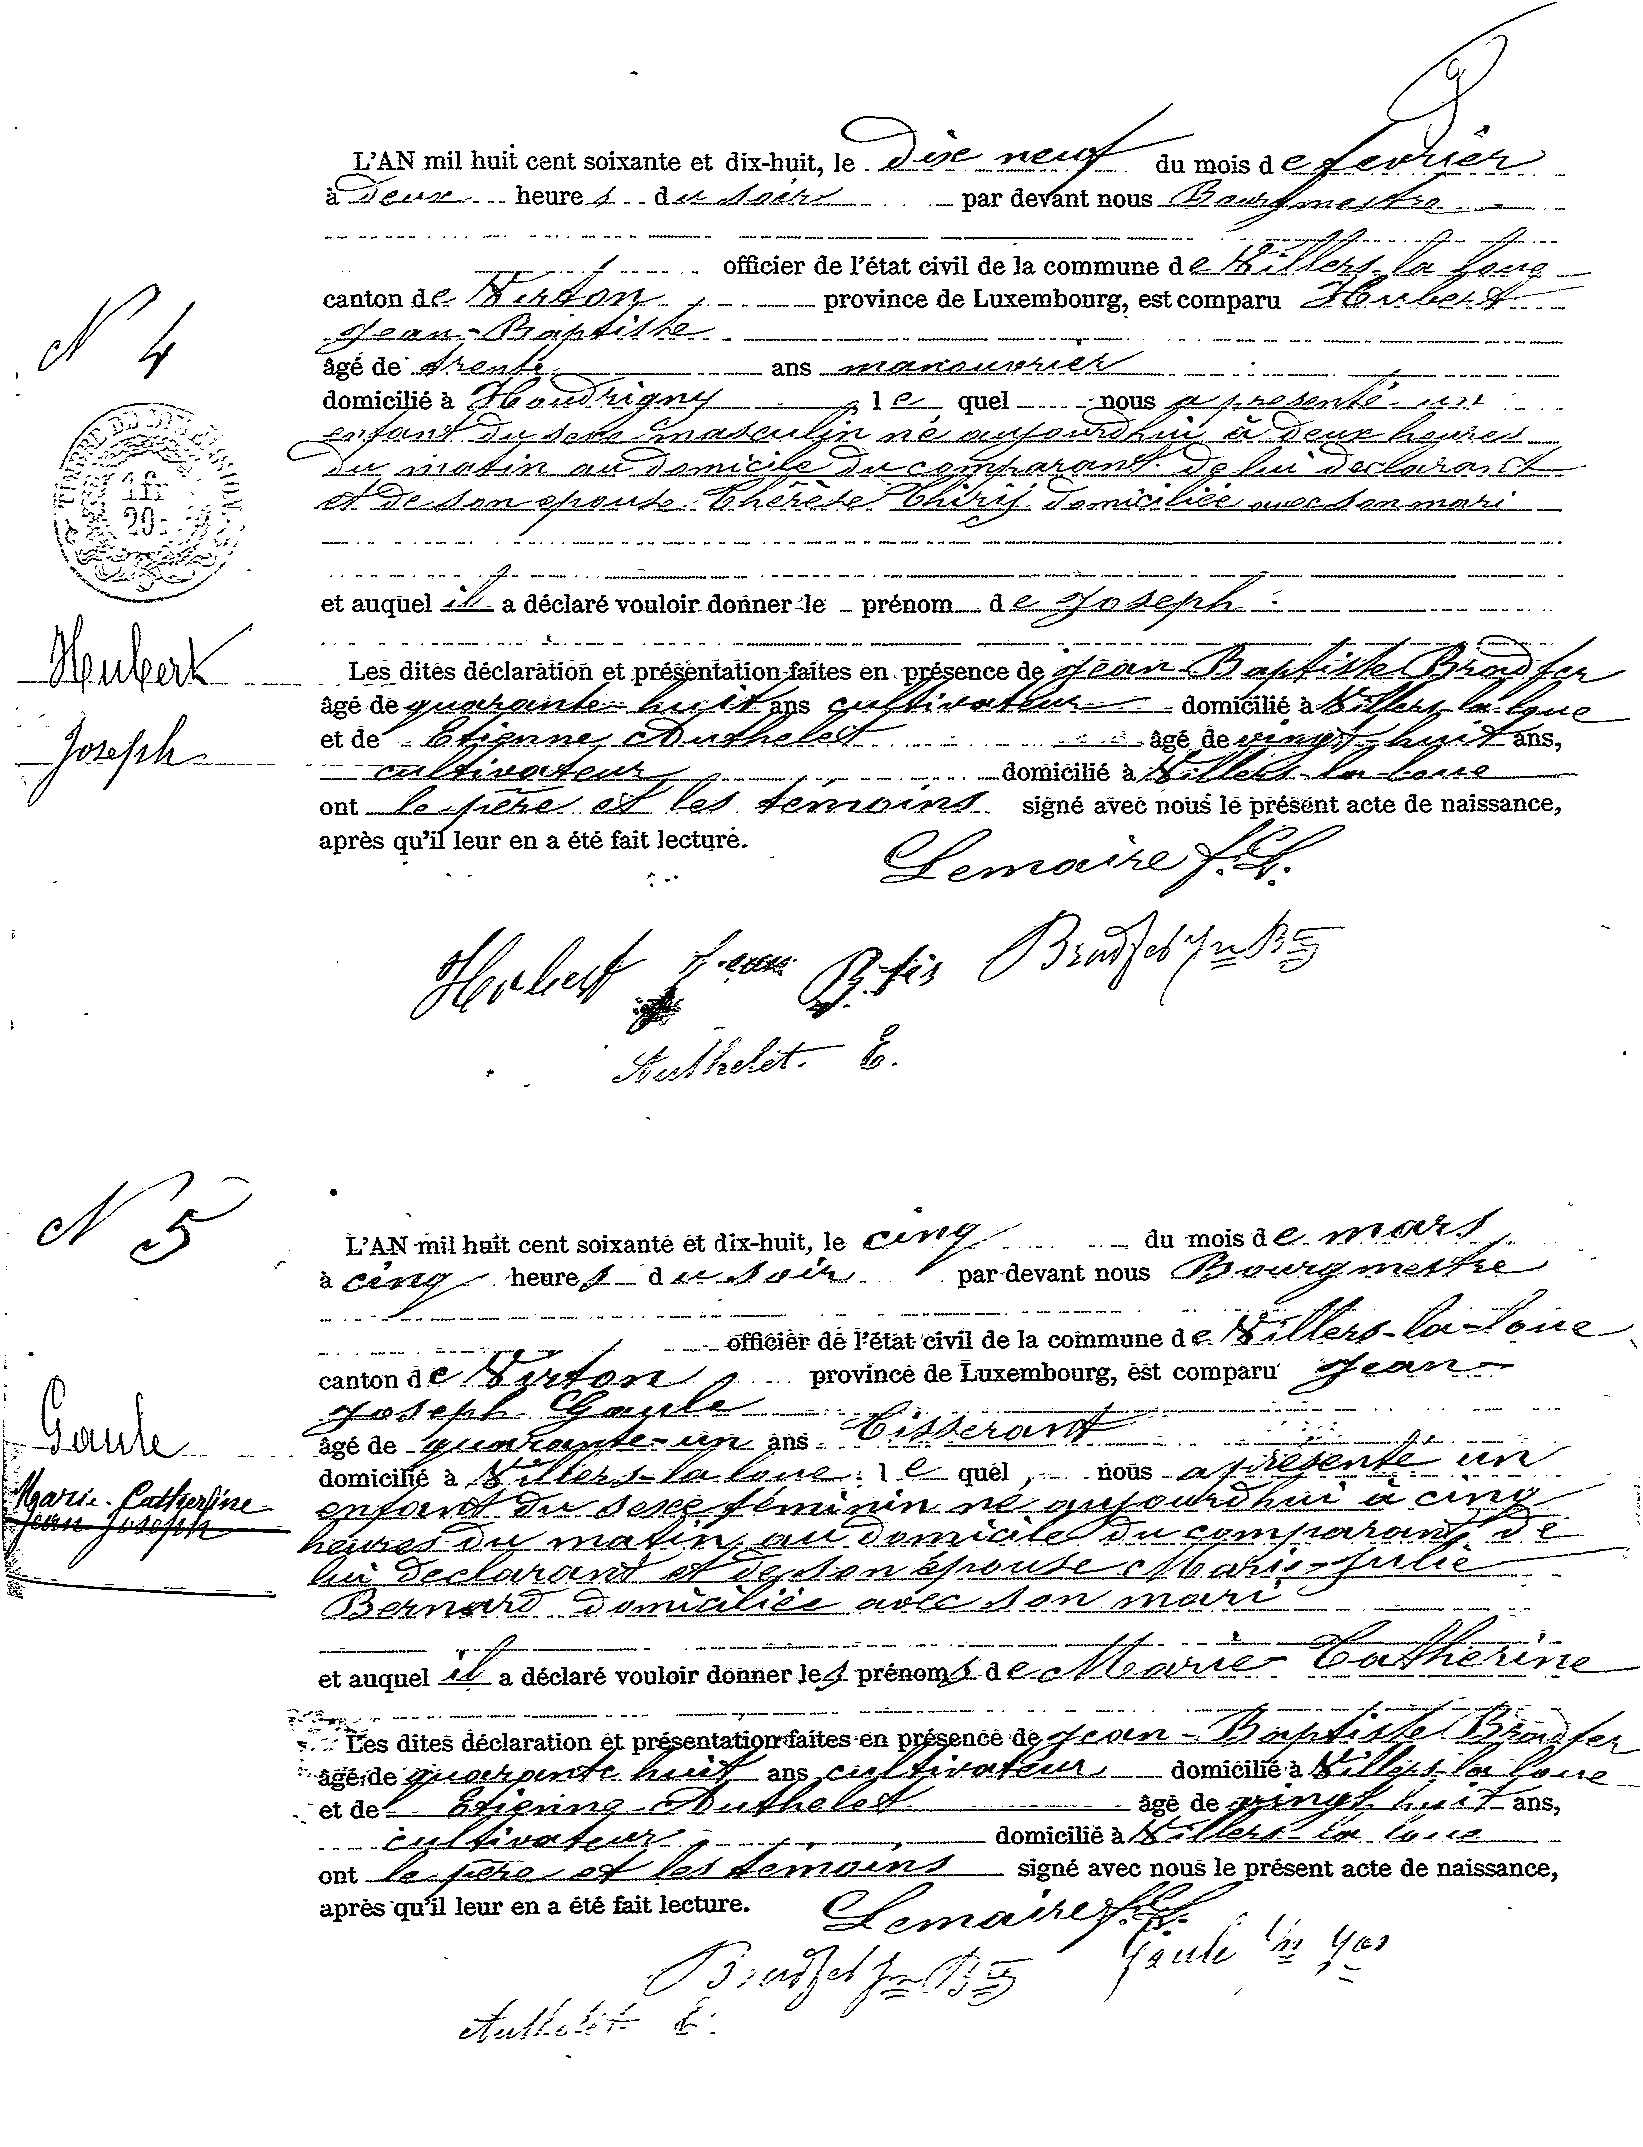 L'AN mil huit cent soixante et dix-huit, le dix neuf du mois de fevrier
à deux heures du soir par devant nous Bourgmestre
officier de l'état civil de la commune de Villers-la-Loue
canton de Virton, province de Luxembourg, est comparu Hubert
Jean-Baptiste
N 4
âgé de trente ans manouvrier
domicilié à Houdrigny, lequel nous a presenté un
enfant du sexe masculin né aujourdhui à deux heures
du matin au domicile du comparant de lui declarant
et de son epouse Thérèse Thiry domiciliée avec son mari
1 fr
20
et auquel il a déclaré vouloir donner le prénom de Joseph
Hubert
Joseph
Les dites déclaration et présentation faites en présence de Jean-Baptiste Bradfer
âgé de quarante-huit ans cultivateur domicilié à Villers-la-loue
et de Etienne Authelet âgé de vingt-huit ans,
cultivateur, domicilié à Villers-la-loue
ont le père et les témoins signé avec nous le présent acte de naissance,
après qu'il leur en a été fait lecture.
Lemaire f. L.
Hubert Jean Btis Bradfer Jn Bte
Authelet. E.
N 5
L'AN mil huit cent soixante et dix-huit, le cinq du mois de mars
à cinq heures du soir par devant nous Bourgmestre
officier de l'état civil de la commune de Villers-la-Loue
canton de Virton, province de Luxembourg, est comparu Jean-
Joseph Gaule
Gaule
Marie-Catherine
Jean Joseph
âgé de quarante-un ans Tisserant
domicilié à Villers-la loue, lequel nous a présenté un
enfant du sexe féminin né aujourdhui à cinq
heures du matin, au domicile du comparant, de
lui declarant et de son épouse Marie-Julie
Bernard domiciliée avec son mari
et auquel il a déclaré vouloir donner les prénoms de Marie-Catherine
Les dites déclaration et présentation faites en présence de Jean-Baptiste Bradfer
âgé de quarante huit ans cultivateur domicilié à Villers-la loue
et de Etienne Authelet âgé de vingt huit ans,
cultivateur domicilié à Villers-la loue
ont le père et les témoins signé avec nous le présent acte de naissance,
après qu'il leur en a été fait lecture.
Lemaire f. L.
Bradfer Jn Bte Gaule Jn Jos
Authelet E.